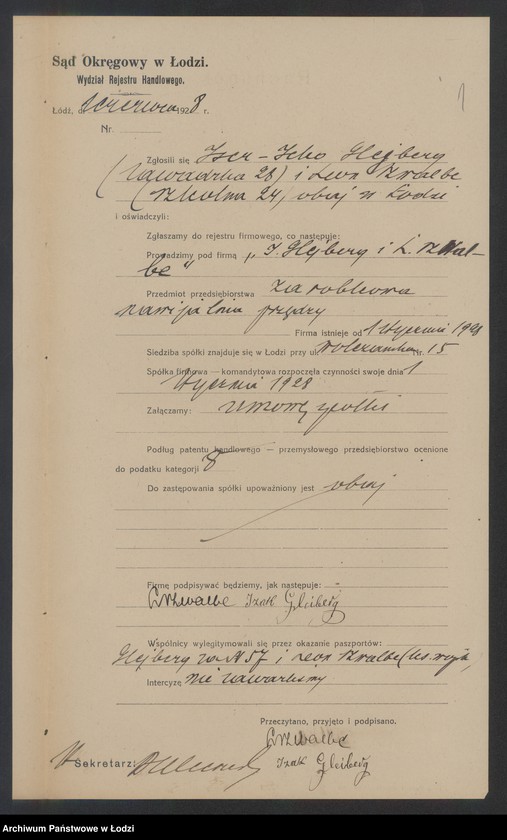 Sąd Okręgowy w Łodzi.
Wydział Rejestru Handlowego.
1
Łódź, d. czerwca 1928 r.
Nr.
Zgłosili się Icer-Icko Glejberg
(Zawadzka 28) i Leon Szwalbe
(Szkolna 24) obaj w Łodzi
i oświadczyli:
Zgłaszamy do rejestru firmowego, co następuje:
Prowadzimy pod firmą „I. Glejberg i L. Szwal-
be"
Przedmiot przedsiębiorstwa zarobkowa
nawijalnia przędzy
Firma istnieje od 1 stycznia 1928
Siedziba spółki znajduje się w Łodzi przy ul. Wólczańska Nr. 15
Spółka firmowa — komandytowa rozpoczęła czynności swoje dnia 1
stycznia 1928
Załączamy: umowę spółki
Podług patentu handlowego — przemysłowego przedsiębiorstwo ocenione
do podatku kategorji 8
Do zastępowania spółki upoważniony jest obaj
Firmę podpisywać będziemy, jak następuje:
Szwalbe Icak Gleiberg
Wspólnicy wylegitymowali się przez okazanie paszportów:
Glejberg za N 57 i Leon Szwalbe (ks. wojsk.)
Intercyzę nie zawarliśmy
Przeczytano, przyjęto i podpisano.
Szwalbe
Sekretarz: Icak Gleiberg
Archiwum Państwowe w Łodzi